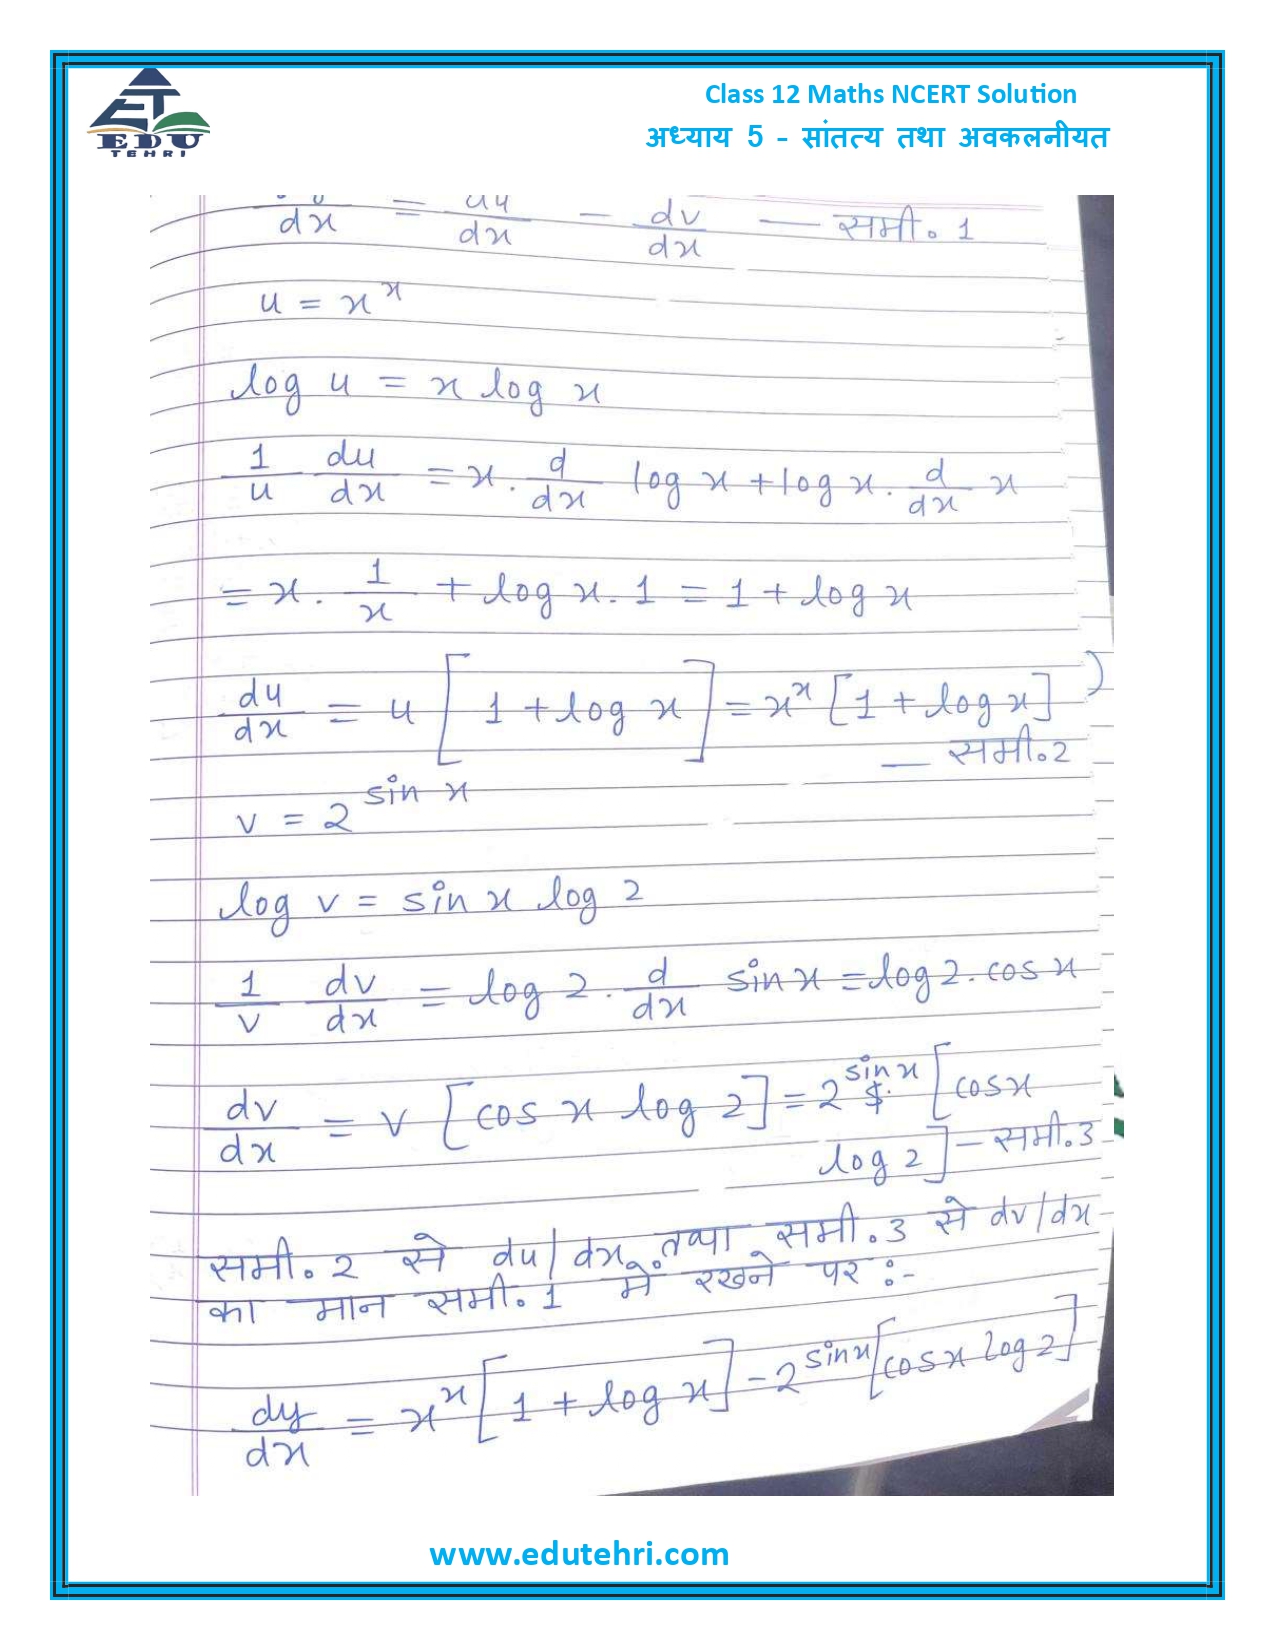 Class 12 Maths NCERT Solution
अध्याय 5 - सांतत्य तथा अवकलनीयत
EDU
TEHRI
dy/dx = du/dx - dv/dx — समी. 1
u = x^x
log u = x log x
1/u du/dx = x . d/dx log x + log x . d/dx x
= x . 1/x + log x . 1 = 1 + log x
du/dx = u [1 + log x] = x^x [1 + log x]
— समी. 2
v = 2^sin x
log v = sin x log 2
1/v dv/dx = log 2 . d/dx sin x = log 2 . cos x
dv/dx = v [cos x log 2] = 2^sin x [cos x
log 2] - समी. 3
समी. 2 से du/dx तथा समी. 3 से dv/dx
का मान समी. 1 में रखने पर :-
dy/dx = x^x [1 + log x] - 2^sin x [cos x log 2]
www.edutehri.com